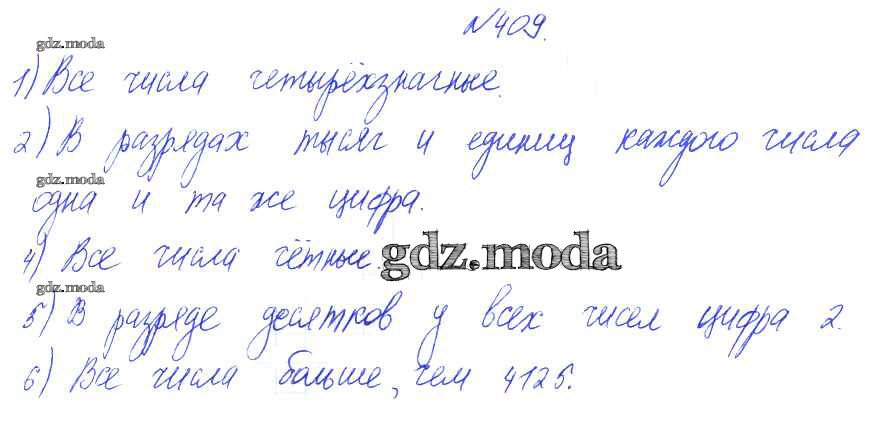 №409.
gdz.moda
1) Все числа четырёхзначные.
2) В разрядах тысяч и единиц каждого числа
gdz.moda
одна и та же цифра.
4) Все числа чётные.
gdz.moda
gdz.moda
5) В разряде десятков у всех чисел цифра 2.
6) Все числа больше, чем 4125.